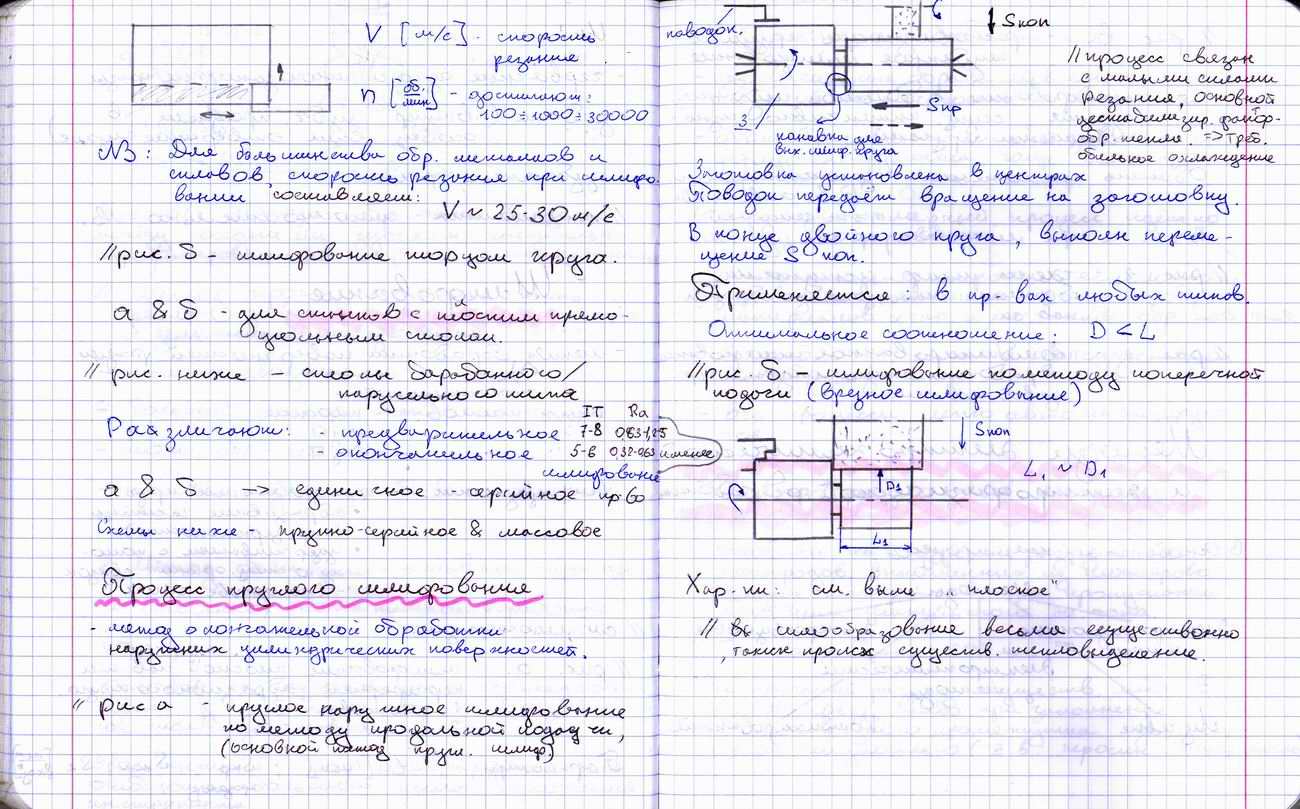 V [м/с] - скорость
резание
n [об./мин] - достигают:
100÷1000÷30000
NB: Для большинства обр. металлов и
сплавов, скорость резания при шлифо-
вании составляет:
V ~ 25-30 м/с
// рис. б - шлифование торцом круга.
а & б - для станков с плоским прямо-
угольным столом.
// рис. ниже - столы барабанного/
карусельного типа
IT Ra
Различают: - предварительное 7-8 0,63-1,25
- окончательное 5-6 0,32-0,63 и менее
шлифование
а & б -> единичное - серийное пр-во
Схемы ниже - крупно-серийное & массовое
Процесс круглого шлифования
- метод окончательной обработки
наружних цилиндрических поверхностей.
// рис а - круглое наружное шлифование
по методу продольной подачи,
(основной метод кругл. шлиф.)
поводок.
Sпоп
// процесс связан
с малыми силами
резания, основной
дестабилизир. фактор-
обр. тепла. => треб.
обильное охлаждение
Sпр
3
канавка для
вых. шлиф. круга
Заготовка установлена в центрах
Поводок передаёт вращение на заготовку.
В конце двойного круга, выполн переме-
щение S поп.
Применяется: в пр-вах любых типов.
Оптимальное соотношение: D < L
// рис. б - шлифование по методу поперечной
подачи (врезное шлифование)
Sпоп
L₁ ~ D₁
D₁
L₁
Хар-ки: см. выше "плоское"
// силообразование весьма существенно
, также происх существ. тепловыделение.